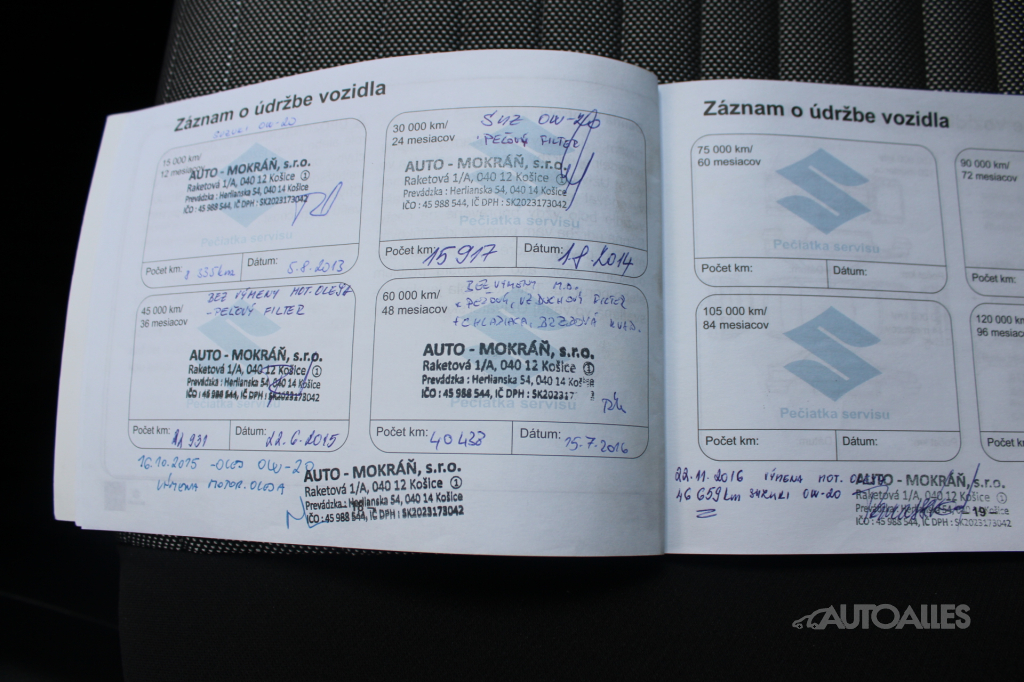 Záznam o údržbe vozidla
SUZUKI OW-20
15 000 km/
12 mesiacov
AUTO - MOKRÁŇ, s.r.o.
Raketová 1/A, 040 12 Košice ①
Prevádzka : Herlianska 54, 040 14 Košice
IČO : 45 988 544, IČ DPH : SK2023173042
Pečiatka servisu
Počet km: 8 335km
Dátum: 5.8.2013
30 000 km/
24 mesiacov
SUZ OW-20
PEĽOVÝ FILTER
AUTO - MOKRÁŇ, s.r.o.
Raketová 1/A, 040 12 Košice ①
Prevádzka : Herlianska 54, 040 14 Košice
IČO : 45 988 544, IČ DPH : SK2023173042
Pečiatka servisu
Počet km: 15 917
Dátum: 1.8.2014
45 000 km/
36 mesiacov
BEZ VÝMENY MOT. OLEJA
- PEĽOVÝ FILTER
AUTO - MOKRÁŇ, s.r.o.
Raketová 1/A, 040 12 Košice ①
Prevádzka : Herlianska 54, 040 14 Košice
IČO : 45 988 544, IČ DPH : SK2023173042
Pečiatka servisu
Počet km: 931
Dátum: 22.6.2015
60 000 km/
48 mesiacov
BEZ VÝMENY M.O.
PEĽOVÝ, VZDUCHOVÝ FILTER
+ CHLADIACA, BRZDOVÁ KVAP.
AUTO - MOKRÁŇ, s.r.o.
Raketová 1/A, 040 12 Košice ①
Prevádzka : Herlianska 54, 040 14 Košice
IČO : 45 988 544, IČ DPH : SK202317
Pečiatka servisu
Počet km: 40 433
Dátum: 15.7.2016
16.10.2015 - OLEJ OW-20
VÝMENA MOTOR. OLEJA
AUTO - MOKRÁŇ, s.r.o.
Raketová 1/A, 040 12 Košice ①
Prevádzka : Herlianska 54, 040 14 Košice
IČO : 45 988 544, IČ DPH : SK2023173042
18
Záznam o údržbe vozidla
75 000 km/
60 mesiacov
Pečiatka servisu
Počet km:
Dátum:
90 000 km/
72 mesiacov
Počet km:
105 000 km/
84 mesiacov
Pečiatka servisu
Počet km:
Dátum:
120 000
96 mesiacov
Počet
22.11.2016 VÝMENA MOT. OLEJA
46 659km SUZUKI OW-20
AUTO - MOKRÁŇ, s.r.o.
Raketová 1/A, 040 12 Košice ①
Košice
IČO : 45 988 544, IČ DPH : SK2023173042
19
AUTOALLES